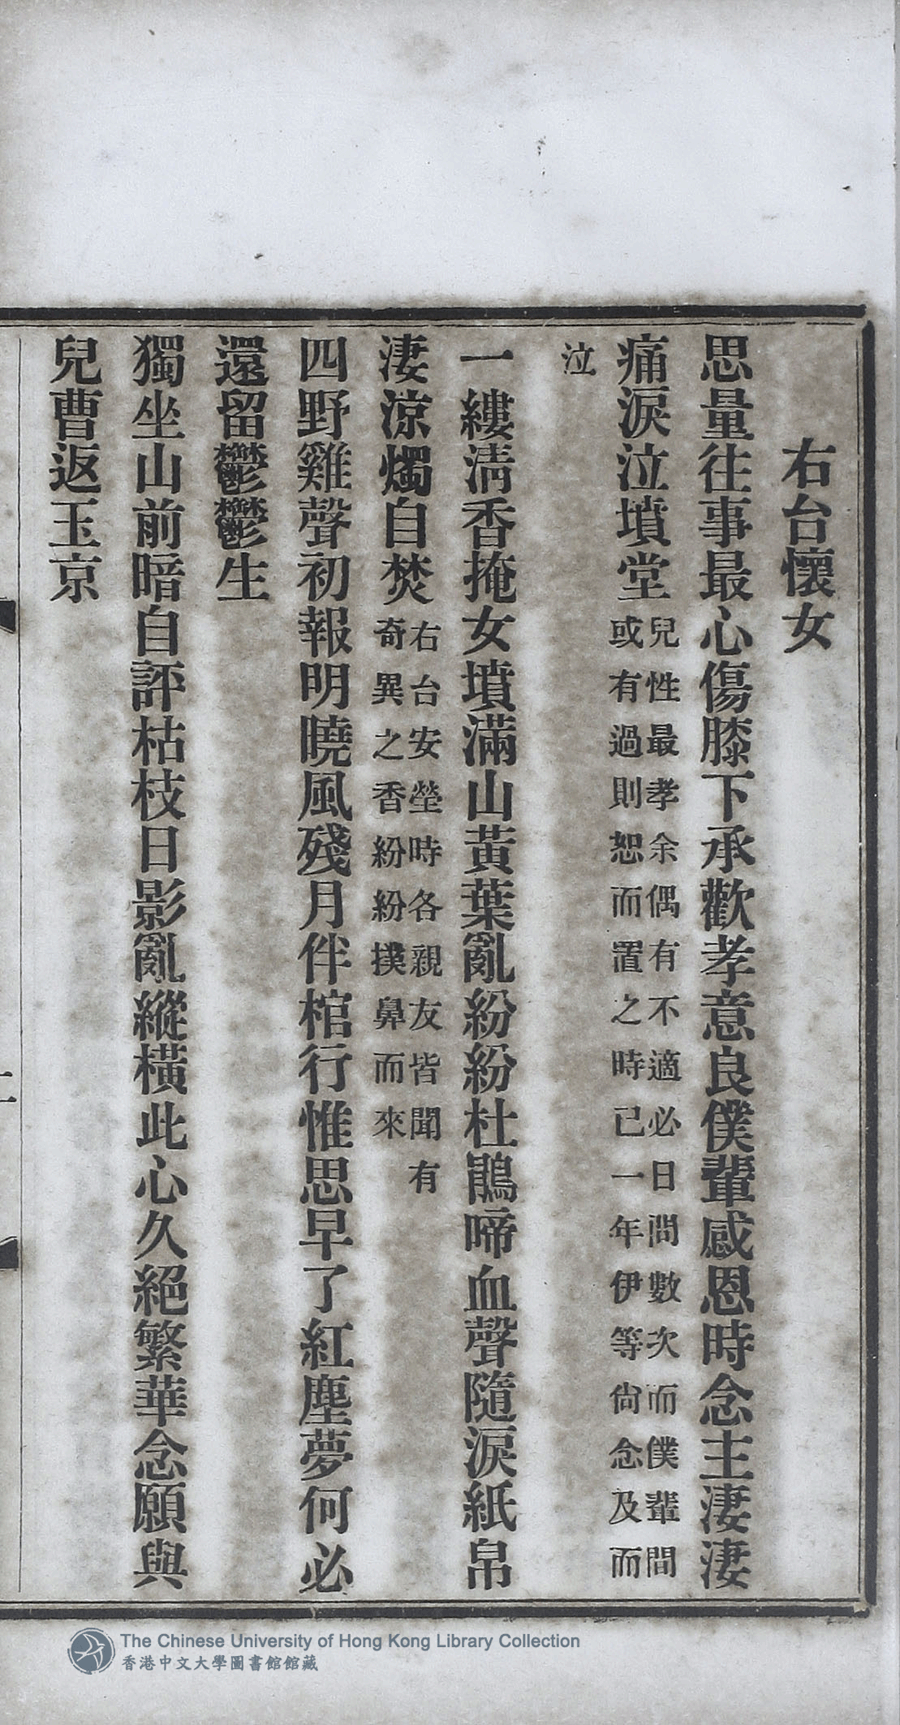 右台懷女
思量往事最心傷膝下承歡孝意良僕輩感恩時念主淒淒
痛淚泣墳堂兒性最孝余偶有不適必日問數次而僕輩間
或有過則恕而置之時已一年伊等尙念及而
泣
一縷清香掩女墳滿山黃葉亂紛紛杜鵑啼血聲隨淚紙帛
淒涼燭自焚右台安塋時各親友皆聞有
奇異之香紛紛撲鼻而來
四野雞聲初報明曉風殘月伴棺行惟思早了紅塵夢何必
還留鬱鬱生
獨坐山前暗自評枯枝日影亂縱橫此心久絕繁華念願與
兒曹返玉京
The Chinese University of Hong Kong Library Collection
香港中文大學圖書館館藏